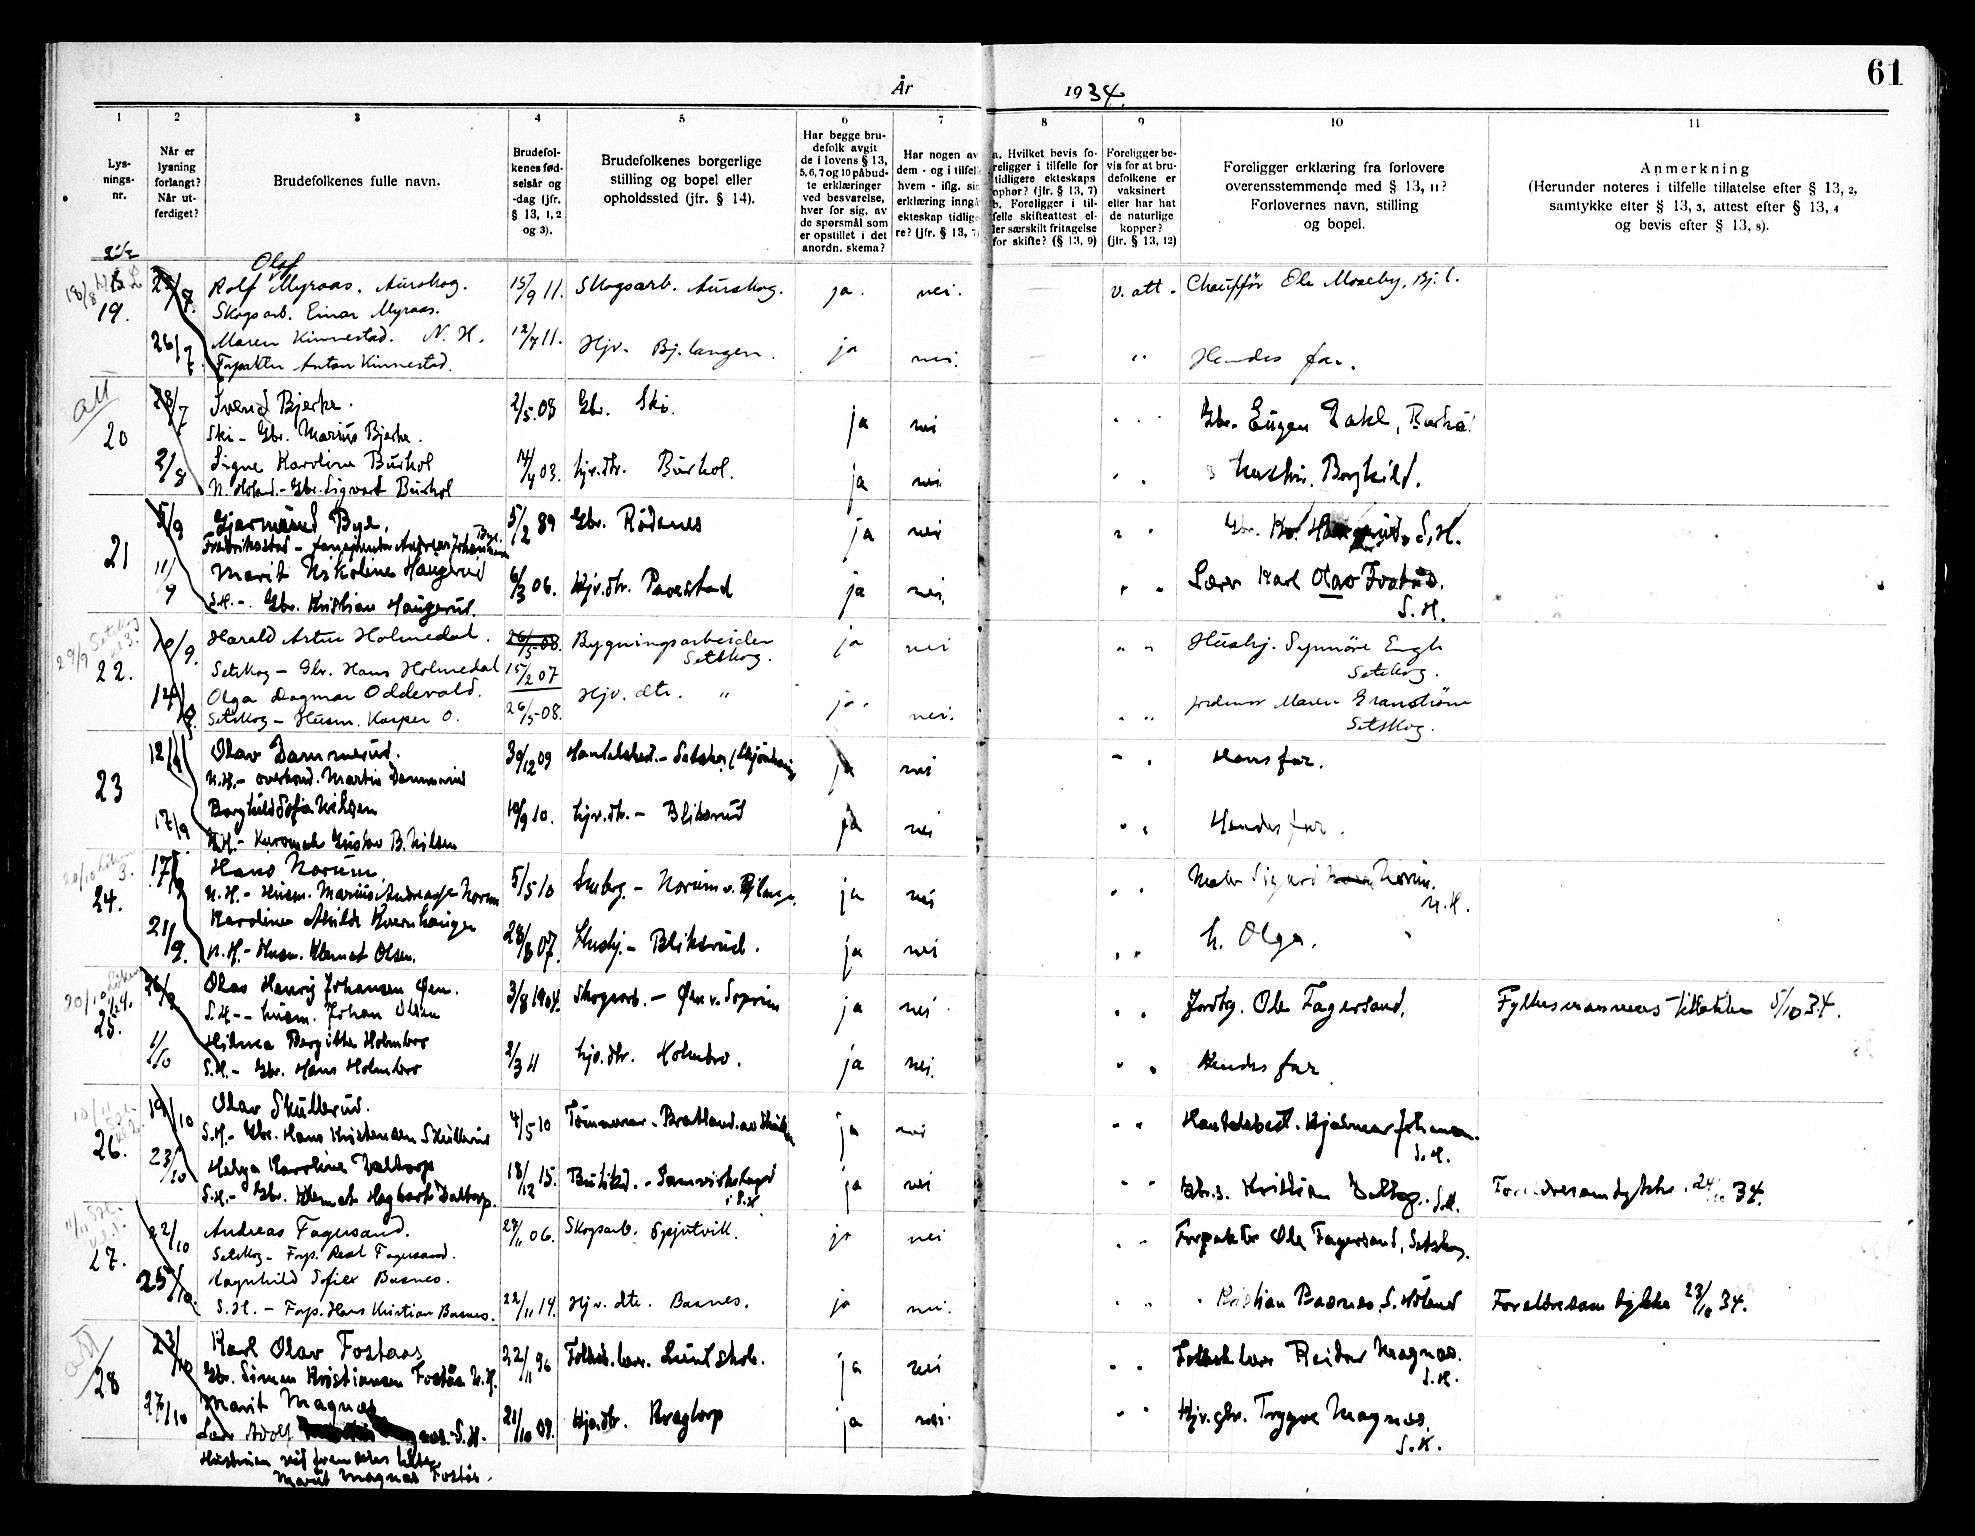 61
År 1934.
1
2
3
4
5
6
7
8
9
10
11
Lys-
nings-
nr.
Når er
lysning
forlangt?
Når ut-
ferdiget?
Brudefolkenes fulle navn.
Brudefol-
kenes fød-
selsår og
-dag (jfr.
§ 13, 1, 2
og 3).
Brudefolkenes borgerlige
stilling og bopel eller
opholdssted (jfr. § 14).
Har begge bru-
defolk avgit
de i lovens § 13,
5, 6, 7 og 10 påbud-
te erklæringer
ved besvarelse,
hver for sig, av
de spørsmål som
er opstillet i det
anordn. skema?
Har nogen av
dem - og i tilfelle
hvem - iflg. sin
erklæring inngå
ekteskap tidlige
re? (jfr. § 13, 7)
a. Hvilket bevis fo-
religger i tilfelle for
tidligere ekteskaps
ophør? (jfr. § 13, 7)
b. Foreligger i til-
felle skifteattest el-
ler særskilt fritagelse
for skifte? (§ 13, 9)
Foreligger be-
vis for at bru-
defolkene er
vaksinert
eller har hat
de naturlige
kopper?
(jfr. § 13, 12)
Foreligger erklæring fra forlovere
overensstemmende med § 13, 11?
Forlovernes navn, stilling
og bopel.
Anmerkning
(Herunder noteres i tilfelle tillatelse efter § 13, 2,
samtykke efter § 13, 3, attest efter § 13, 4
og bevis efter § 13, 8).
Olaf
19. Rolf Myraas. Aurskog. 15/9 11. Skogsarb. Aurskog. ja. nei. v. att. Chauffør Ole Moseby, Bj.l.
Skogsarb. Einar Myraas.
26/7 Maren Kinnestad. N. H. 12/7 11. Hjv. Bj.langen. ja nei. " Hendes far.
Forpakter Anton Kinnestad.
att
20 28/7 Svend Bjerke. 2/5.08 Gbr. Ski. ja nei Gbr. Eugen
Ski - Gbr. Marius Bjerke.
2/8 Signe Karoline Burhol 14/4 03. hjv.dtr. Burhol. ja nei Borghild.
N. Høland - Gbr. Sigvart Burhol
21 5/9 Gjermund Bye. 5/2 89 Gbr. Rødenes ja nei " Gbr. Kr. Haugerud, S.H.
Fredrikstad - Andreas Johansen Bye.
11/9 Marit Nikoline Haugerud 6/3 06. Hjv.dtr. Pavestad ja nei. " Lærer Karl Olav Fostås.
S.H. - Gbr. Kristian Haugerud. S.H.
29/9 Setskog kl 3.
22. 10/9. Harald Artur Holmedal. 26/5.08. Bygningsarbeider ja nei " " Husbj. Synnøve Engh
Setskog. Setskog.
Setskog - Gbr. Hans Holmedal 15/2 07
14/9 Olga Dagmar Oddevald. 26/5-08. Hjv. dtr. " ja. nei. " " jordmor Maren Granstrøm
Setskog - Husm. Kasper O. Setskog.
23 12/9 Olav Dammerud. 30/12 09 Handelsbest. - Setskog ja nei " Hans far.
N.H. - Martin Dammerud
17/9 Borghild Sofie Nilsen 19/9 10. hjv.dtr. - Bliksrud ja nei " Hendes far.
N.H. - Gustav B. Nilsen
20/10 3.
24. 17/9 Hans Norum. 5/5 10 Småbrg. - Norum v. Bj.langen. ja nei Maler Sigurd Norum.
N.H. - Husm. Marius Andreas Norum N.H.
21/9. Karoline Alvilde Kvernhaugen 28/8 07. Husbj. - Bliksrud. ja nei h. Olga.
N.H. - Husm. Klemet Olsen.
20/10
25. 26/9 Olav Henrij Johansen Øen. 3/8 1904. Skogsarb. - Øen v. Soprim ja nei Jordbg. Ole Fagersand. Fylkesmannens tillatelse 5/10 34.
S.H. - husm. Johan Olsen
1/10 Hilma Bergitte Holmbro 2/3 11 hjv.dtr. Holmbro. ja nei. " Hendes far
S.H. - Gbr. Hans Holmbro
10/11
26. 19/10 Olav Skullerud. 4/5 10 Tømmerm. - ja nei " Handelsbest. Hjalmar Johansen.
S.H. - Gbr. Hans Kristensen Skullerud S.H.
23/10 Helga Karoline Daltorp 18/12 15. Butikd. - Samvirkelaget ja nei " Gbr.s. Kristian S.H. Foreldresamtykke. 24/10 34.
i S.H.
S.H. - Gbr. Klemet Hagbart Daltorp.
11/11 S.H.
27. 22/10 Andreas Fagersand. 29/11 06. Skogsarb. Spjutvik. ja nei " Forpakter Ole Fagersand, Setskog.
Setskog - Forp. Real Fagersand.
25/10. Ragnhild Sofie Basnes. 22/11 14. Hjv. dtr. Basnes. ja nei. " Kristian Basnes, S. Høland Foreldresamtykke 23/10 34.
S.H. - Forp. Hans Kristian Basnes.
att
28 23/10 Karl Olav Fostaas 22/11 96 Folkesk.lærer. Lundskob. ja nei Folkesk.lærer Reidar Magnæs.
Gbr. Simen Kristiansen Fostås N.H. S.H.
27/10 Marit Magnæs 21/10 08. Hjv.dtr. Kragtorp ja nei " Hjv.gbr. Trygve Magnæs.
Lær. Adolf Magnæs - S.H. S.H.
Hustruen vil fremdeles hete
Marit Magnæs Fostås.